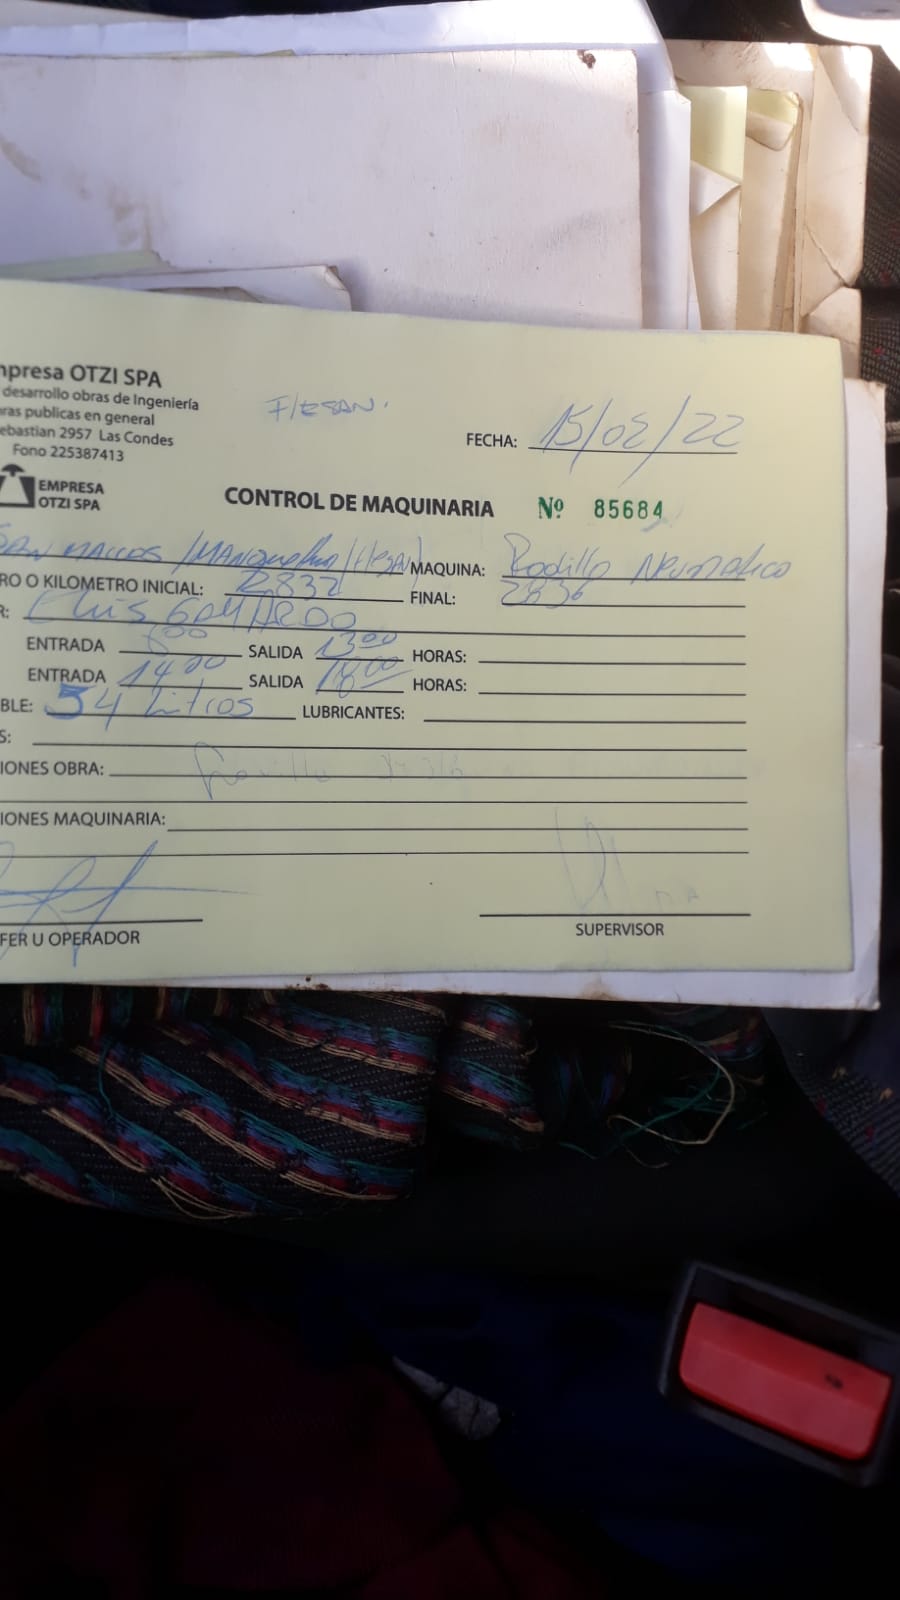 mpresa OTZI SPA
desarrollo obras de Ingeniería
ras publicas en general
ebastian 2957 Las Condes
Fono 225387413
EMPRESA
OTZI SPA
F/ESAN.
FECHA: 15/02/22
CONTROL DE MAQUINARIA Nº 85684
SAN MARCOS / MAQUINA: Rodillo Neumatico
RO O KILOMETRO INICIAL: 2832 FINAL: 2836
R: LUIS GAJARDO
ENTRADA 800 SALIDA 1300 HORAS:
ENTRADA 1400 SALIDA 1800 HORAS:
BLE: 54 Litros LUBRICANTES:
S:
IONES OBRA:
IONES MAQUINARIA:
FER U OPERADOR
SUPERVISOR